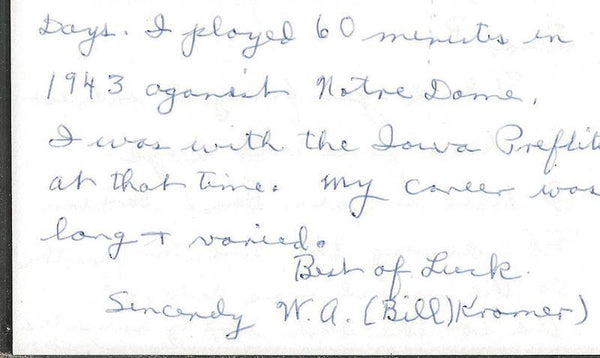 Days. I played 60 minutes in
1943 against Notre Dame.
I was with the Iowa Preflite
at that time. My career was
long + varied.
Best of Luck.
Sincerely W. A. (Bill) Kramer)